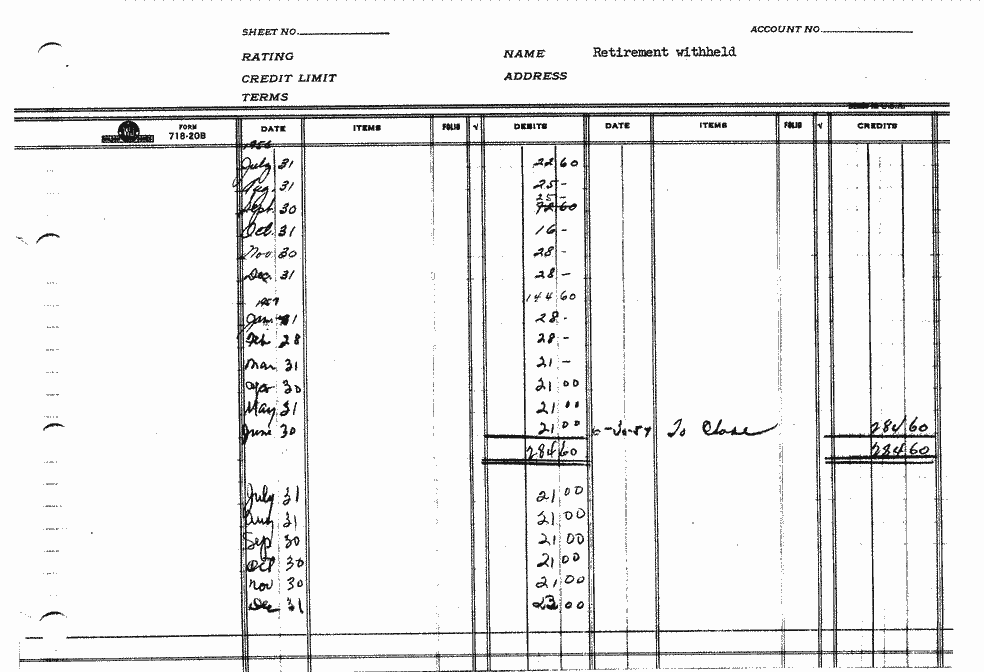 SHEET NO.
ACCOUNT NO.
RATING NAME Retirement withheld
CREDIT LIMIT ADDRESS
TERMS
FORM
718-20B
DATE ITEMS FOLIO √ DEBITS DATE ITEMS FOLIO √ CREDITS
1956
July 31 22 60
Aug. 31 25 -
25 -
Sept. 30 72 60
Oct. 31 16 -
Nov 30 28 -
Dec. 31 28 -
1957 144 60
Jan 31 28 -
Feb 28 28 -
Mar 31 21 -
Apr 30 21 00
May 31 21 00
June 30 21 00 6-30-57 To Close 284 60
284 60 284 60
July 31 21 00
Aug 31 21 00
Sep 30 21 00
Oct 30 21 00
Nov 30 21 00
Dec 31 23 00